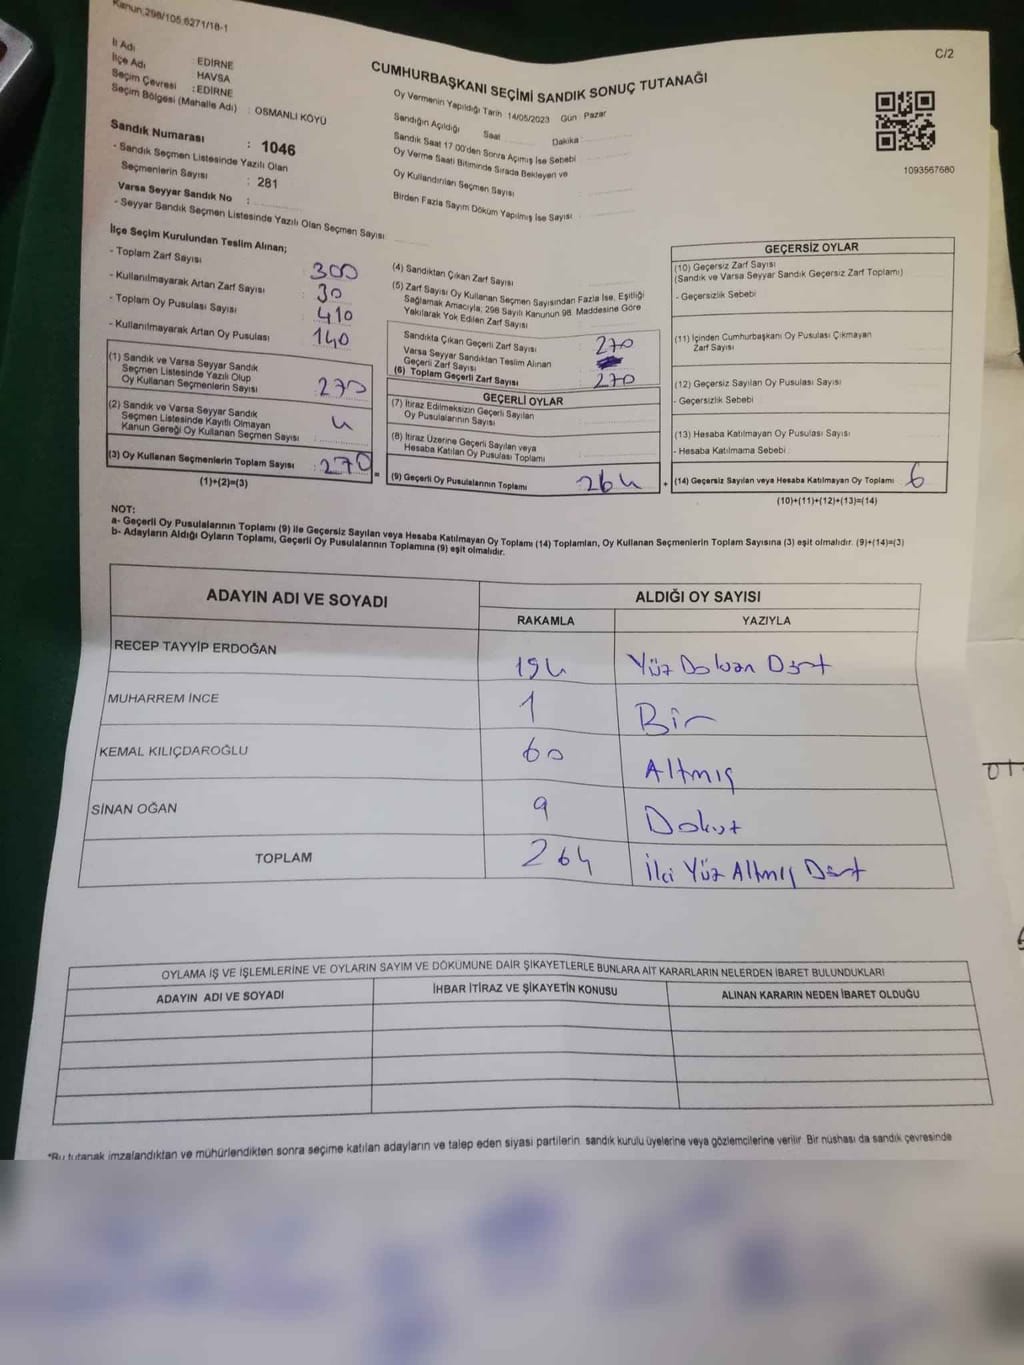 Kanun:298/105,6271/18-1
C/2
İl Adı : EDİRNE
İlçe Adı : HAVSA
Seçim Çevresi : EDİRNE
Seçim Bölgesi (Mahalle Adı) : OSMANLI KÖYÜ
CUMHURBAŞKANI SEÇİMİ SANDIK SONUÇ TUTANAĞI
Oy Vermenin Yapıldığı Tarih 14/05/2023 Gün Pazar
Sandığın Açıldığı Saat Dakika
Sandık Saat 17.00'den Sonra Açımış İse Sebebi
Oy Verme Saati Bitiminde Sırada Bekleyen ve
Oy Kullandırılan Seçmen Sayısı
Birden Fazla Sayım Döküm Yapılmış İse Sayısı
1093567680
Sandık Numarası : 1046
- Sandık Seçmen Listesinde Yazılı Olan
Seçmenlerin Sayısı : 281
Varsa Seyyar Sandık No :
- Seyyar Sandık Seçmen Listesinde Yazılı Olan Seçmen Sayısı
İlçe Seçim Kurulundan Teslim Alınan;
- Toplam Zarf Sayısı : 300
- Kullanılmayarak Artan Zarf Sayısı : 30
- Toplam Oy Pusulası Sayısı : 410
- Kullanılmayarak Artan Oy Pusulası : 140
(1) Sandık ve Varsa Seyyar Sandık
Seçmen Listesinde Yazılı Olup
Oy Kullanan Seçmenlerin Sayısı : 270
(2) Sandık ve Varsa Seyyar Sandık
Seçmen Listesinde Kayıtlı Olmayan
Kanun Gereği Oy Kullanan Seçmen Sayısı :
(3) Oy Kullanan Seçmenlerin Toplam Sayısı : 270
(1)+(2)=(3)
(4) Sandıktan Çıkan Zarf Sayısı
(5) Zarf Sayısı Oy Kullanan Seçmen Sayısından Fazla İse, Eşitliği
Sağlamak Amacıyla, 298 Sayılı Kanunun 98. Maddesine Göre
Yakılarak Yok Edilen Zarf Sayısı
Sandıkta Çıkan Geçerli Zarf Sayısı : 270
Varsa Seyyar Sandıktan Teslim Alınan
Geçerli Zarf Sayısı
(6) Toplam Geçerli Zarf Sayısı : 270
GEÇERLİ OYLAR
(7) İtiraz Edilmeksizin Geçerli Sayılan
Oy Pusulalarının Sayısı
(8) İtiraz Üzerine Geçerli Sayılan veya
Hesaba Katılan Oy Pusulası Toplamı
= (9) Geçerli Oy Pusulalarının Toplamı 264
GEÇERSİZ OYLAR
(10) Geçersiz Zarf Sayısı
(Sandık ve Varsa Seyyar Sandık Geçersiz Zarf Toplamı)
- Geçersizlik Sebebi
(11) İçinden Cumhurbaşkanı Oy Pusulası Çıkmayan
Zarf Sayısı
(12) Geçersiz Sayılan Oy Pusulası Sayısı
- Geçersizlik Sebebi
(13) Hesaba Katılmayan Oy Pusulası Sayısı
- Hesaba Katılmama Sebebi
+ (14) Geçersiz Sayılan veya Hesaba Katılmayan Oy Toplamı 6
(10)+(11)+(12)+(13)=(14)
NOT:
a- Geçerli Oy Pusulalarının Toplamı (9) ile Geçersiz Sayılan veya Hesaba Katılmayan Oy Toplamı (14) Toplamları, Oy Kullanan Seçmenlerin Toplam Sayısına (3) eşit olmalıdır. (9)+(14)=(3)
b- Adayların Aldığı Oyların Toplamı, Geçerli Oy Pusulalarının Toplamına (9) eşit olmalıdır.
ADAYIN ADI VE SOYADI ALDIĞI OY SAYISI
RAKAMLA YAZIYLA
RECEP TAYYİP ERDOĞAN 194 Yüz Doksan Dört
MUHARREM İNCE 1 Bir
KEMAL KILIÇDAROĞLU 60 Altmış
SİNAN OĞAN 9 Dokuz
TOPLAM 264 İki Yüz Altmış Dört
OYLAMA İŞ VE İŞLEMLERİNE VE OYLARIN SAYIM VE DÖKÜMÜNE DAİR ŞİKAYETLERLE BUNLARA AİT KARARLARIN NELERDEN İBARET BULUNDUKLARI
ADAYIN ADI VE SOYADI İHBAR İTİRAZ VE ŞİKAYETİN KONUSU ALINAN KARARIN NEDEN İBARET OLDUĞU
*Bu tutanak imzalandıktan ve mühürlendikten sonra seçime katılan adayların ve talep eden siyasi partilerin sandık kurulu üyelerine veya gözlemcilerine verilir. Bir nüshası da sandık çevresinde